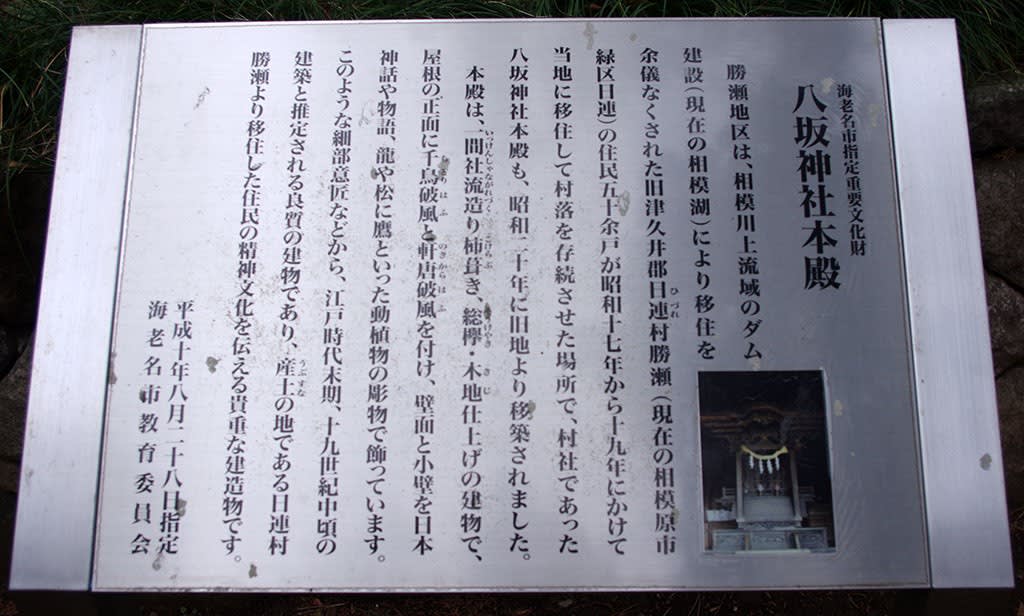 海老名市指定重要文化財
八坂神社本殿
勝瀬地区は、相模川上流域のダム
建設（現在の相模湖）により移住を
余儀なくされた旧津久井郡日連村勝瀬（現在の相模原市
緑区日連）の住民五十余戸が昭和十七年から十九年にかけて
当地に移住して村落を存続させた場所で、村社であった
八坂神社本殿も、昭和二十年に旧地より移築されました。
本殿は、一間社流造り杮葺き、総欅・木地仕上げの建物で、
屋根の正面に千鳥破風と軒唐破風を付け、壁面と小壁を日本
神話や物語、龍や松に鷹といった動植物の彫物で飾っています。
このような細部意匠などから、江戸時代末期、十九世紀中頃の
建築と推定される良質の建物であり、産土の地である日連村
勝瀬より移住した住民の精神文化を伝える貴重な建造物です。
平成十年八月二十八日指定
海老名市教育委員会